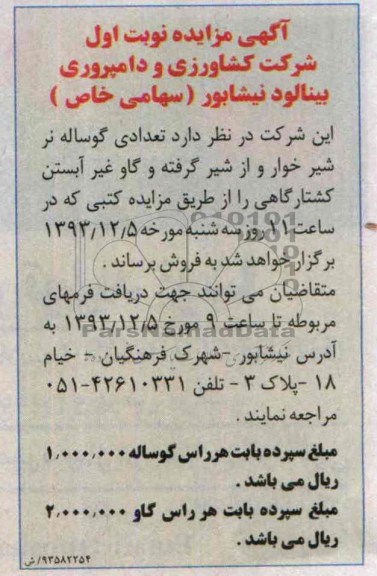 آگهی مزایده نوبت اول
شرکت کشاورزی و دامپروری
بینالود نیشابور (سهامی خاص)
این شرکت در نظر دارد تعدادی گوساله نر
شیر خوار و از شیر گرفته و گاو غیر آبستن
کشتارگاهی را از طریق مزایده کتبی که در
ساعت ۱۱ روز سه شنبه مورخه ۱۳۹۳٫۱۲٫۵
برگزار خواهد شد به فروش برساند.
متقاضیان می توانند جهت دریافت فرمهای
مربوطه تا ساعت ۹ مورخ ۱۳۹۳٫۱۲٫۵ به
ParsNamadData
آدرس نیشابور -شهرک فرهنگیان - خیام
۱۸ -پلاک ۳ - تلفن ۴۲۶۱۰۳۳۱-۰۵۱
مراجعه نمایند.
مبلغ سپرده بابت هر راس گوساله ۱٫۰۰۰٫۰۰۰
ریال می باشد.
مبلغ سپرده بابت هر راس گاو ۲٫۰۰۰٫۰۰۰
ریال می باشد.
۹۳۵۸۲۲۵۴/ش